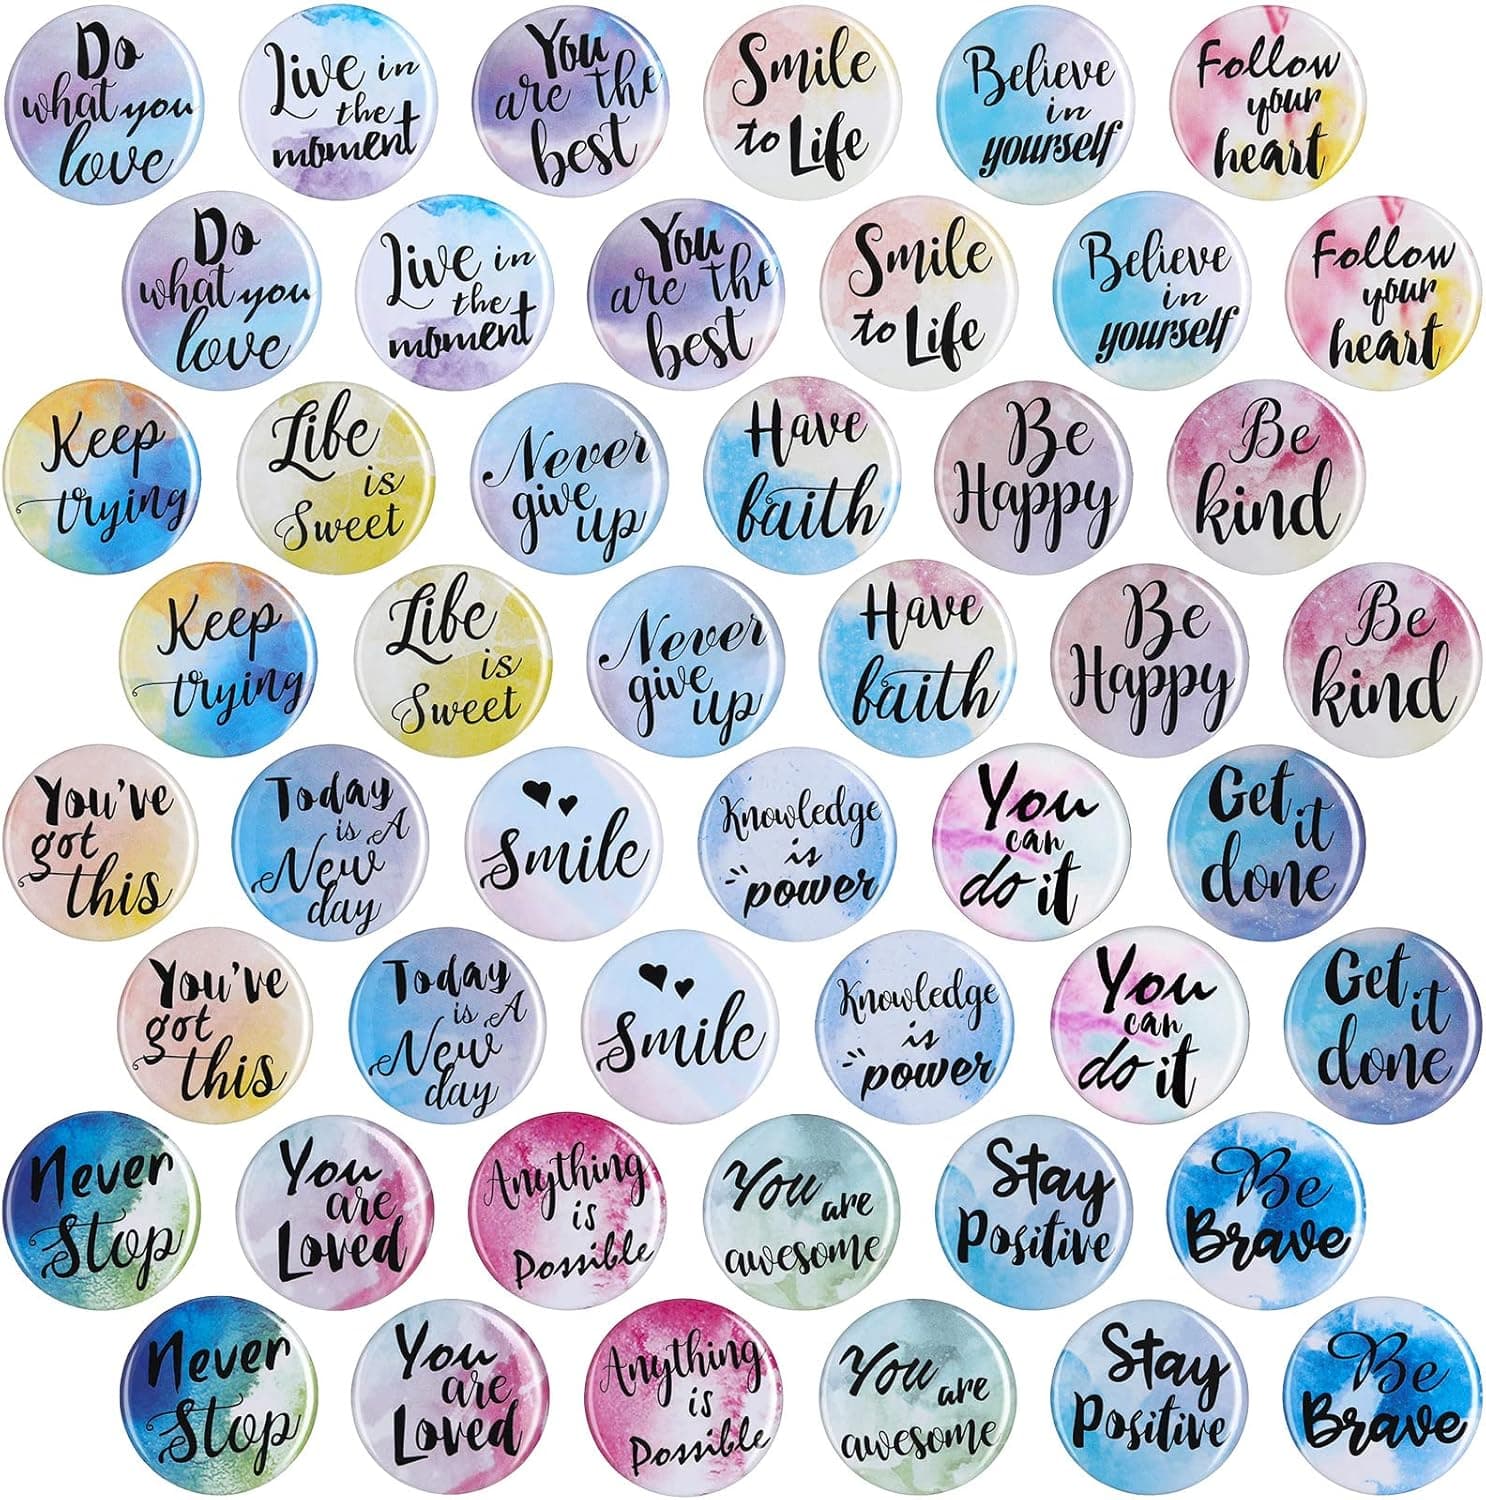 Do
what you
love
Live in
the
moment
You
are the
best
Smile
to Life
Believe
in
yourself
Follow
your
heart
Do
what you
love
Live in
the
moment
You
are the
best
Smile
to Life
Believe
in
yourself
Follow
your
heart
Keep
trying
Life
is
Sweet
Never
give
up
Have
faith
Be
Happy
Be
kind
Keep
trying
Life
is
Sweet
Never
give
up
Have
faith
Be
Happy
Be
kind
You've
got
this
Today
is A
New
day
Smile
Knowledge
is
"power
You
can
do it
Get
it
done
You've
got
this
Today
is A
New
day
Smile
Knowledge
is
"power
You
can
do it
Get
it
done
Never
Stop
You
are
Loved
Anything
is
Possible
You are
awesome
Stay
Positive
Be
Brave
Never
Stop
You
are
Loved
Anything
is
Possible
You are
awesome
Stay
Positive
Be
Brave